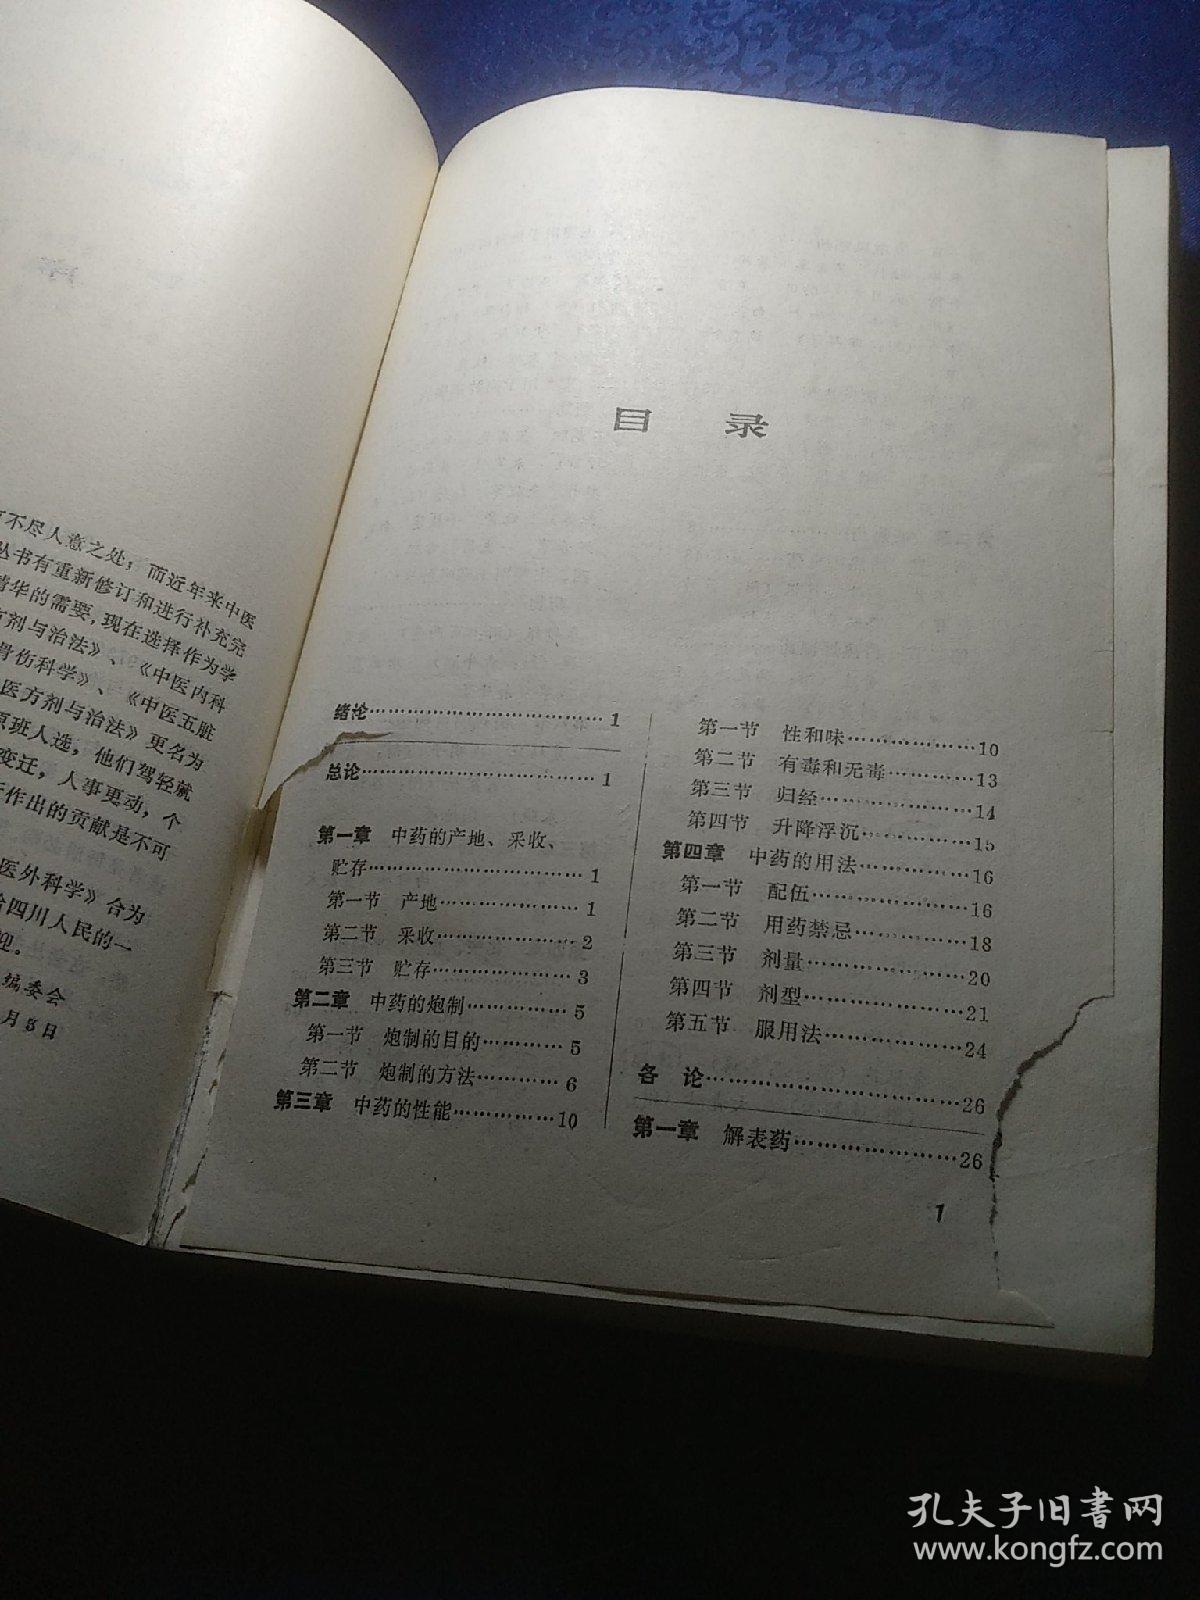 不尽人意之处；而近年来中医
丛书有重新修订和进行补充完
精华的需要，现在选择作为学
方剂与治法》、《中医内科
骨伤科学》、《中医五脏
医方剂与治法》更名为
原班人选，他们驾轻就
变迁，人事更动，个
作出的贡献是不可
医外科学》合为
给四川人民的一
迎。
编委会
月8日
目 录
绪论……………………………1
总论……………………………1
第一章 中药的产地、采收、
贮存……………………………1
第一节 产地…………………1
第二节 采收…………………2
第三节 贮存…………………3
第二章 中药的炮制…………5
第一节 炮制的目的…………5
第二节 炮制的方法…………6
第三章 中药的性能…………10
第一节 性和味………………10
第二节 有毒和无毒…………13
第三节 归经…………………14
第四节 升降浮沉……………15
第四章 中药的用法…………16
第一节 配伍…………………16
第二节 用药禁忌……………18
第三节 剂量…………………20
第四节 剂型…………………21
第五节 服用法………………24
各 论…………………………26
第一章 解表药………………26
1
孔夫子旧书网
www.kongfz.com